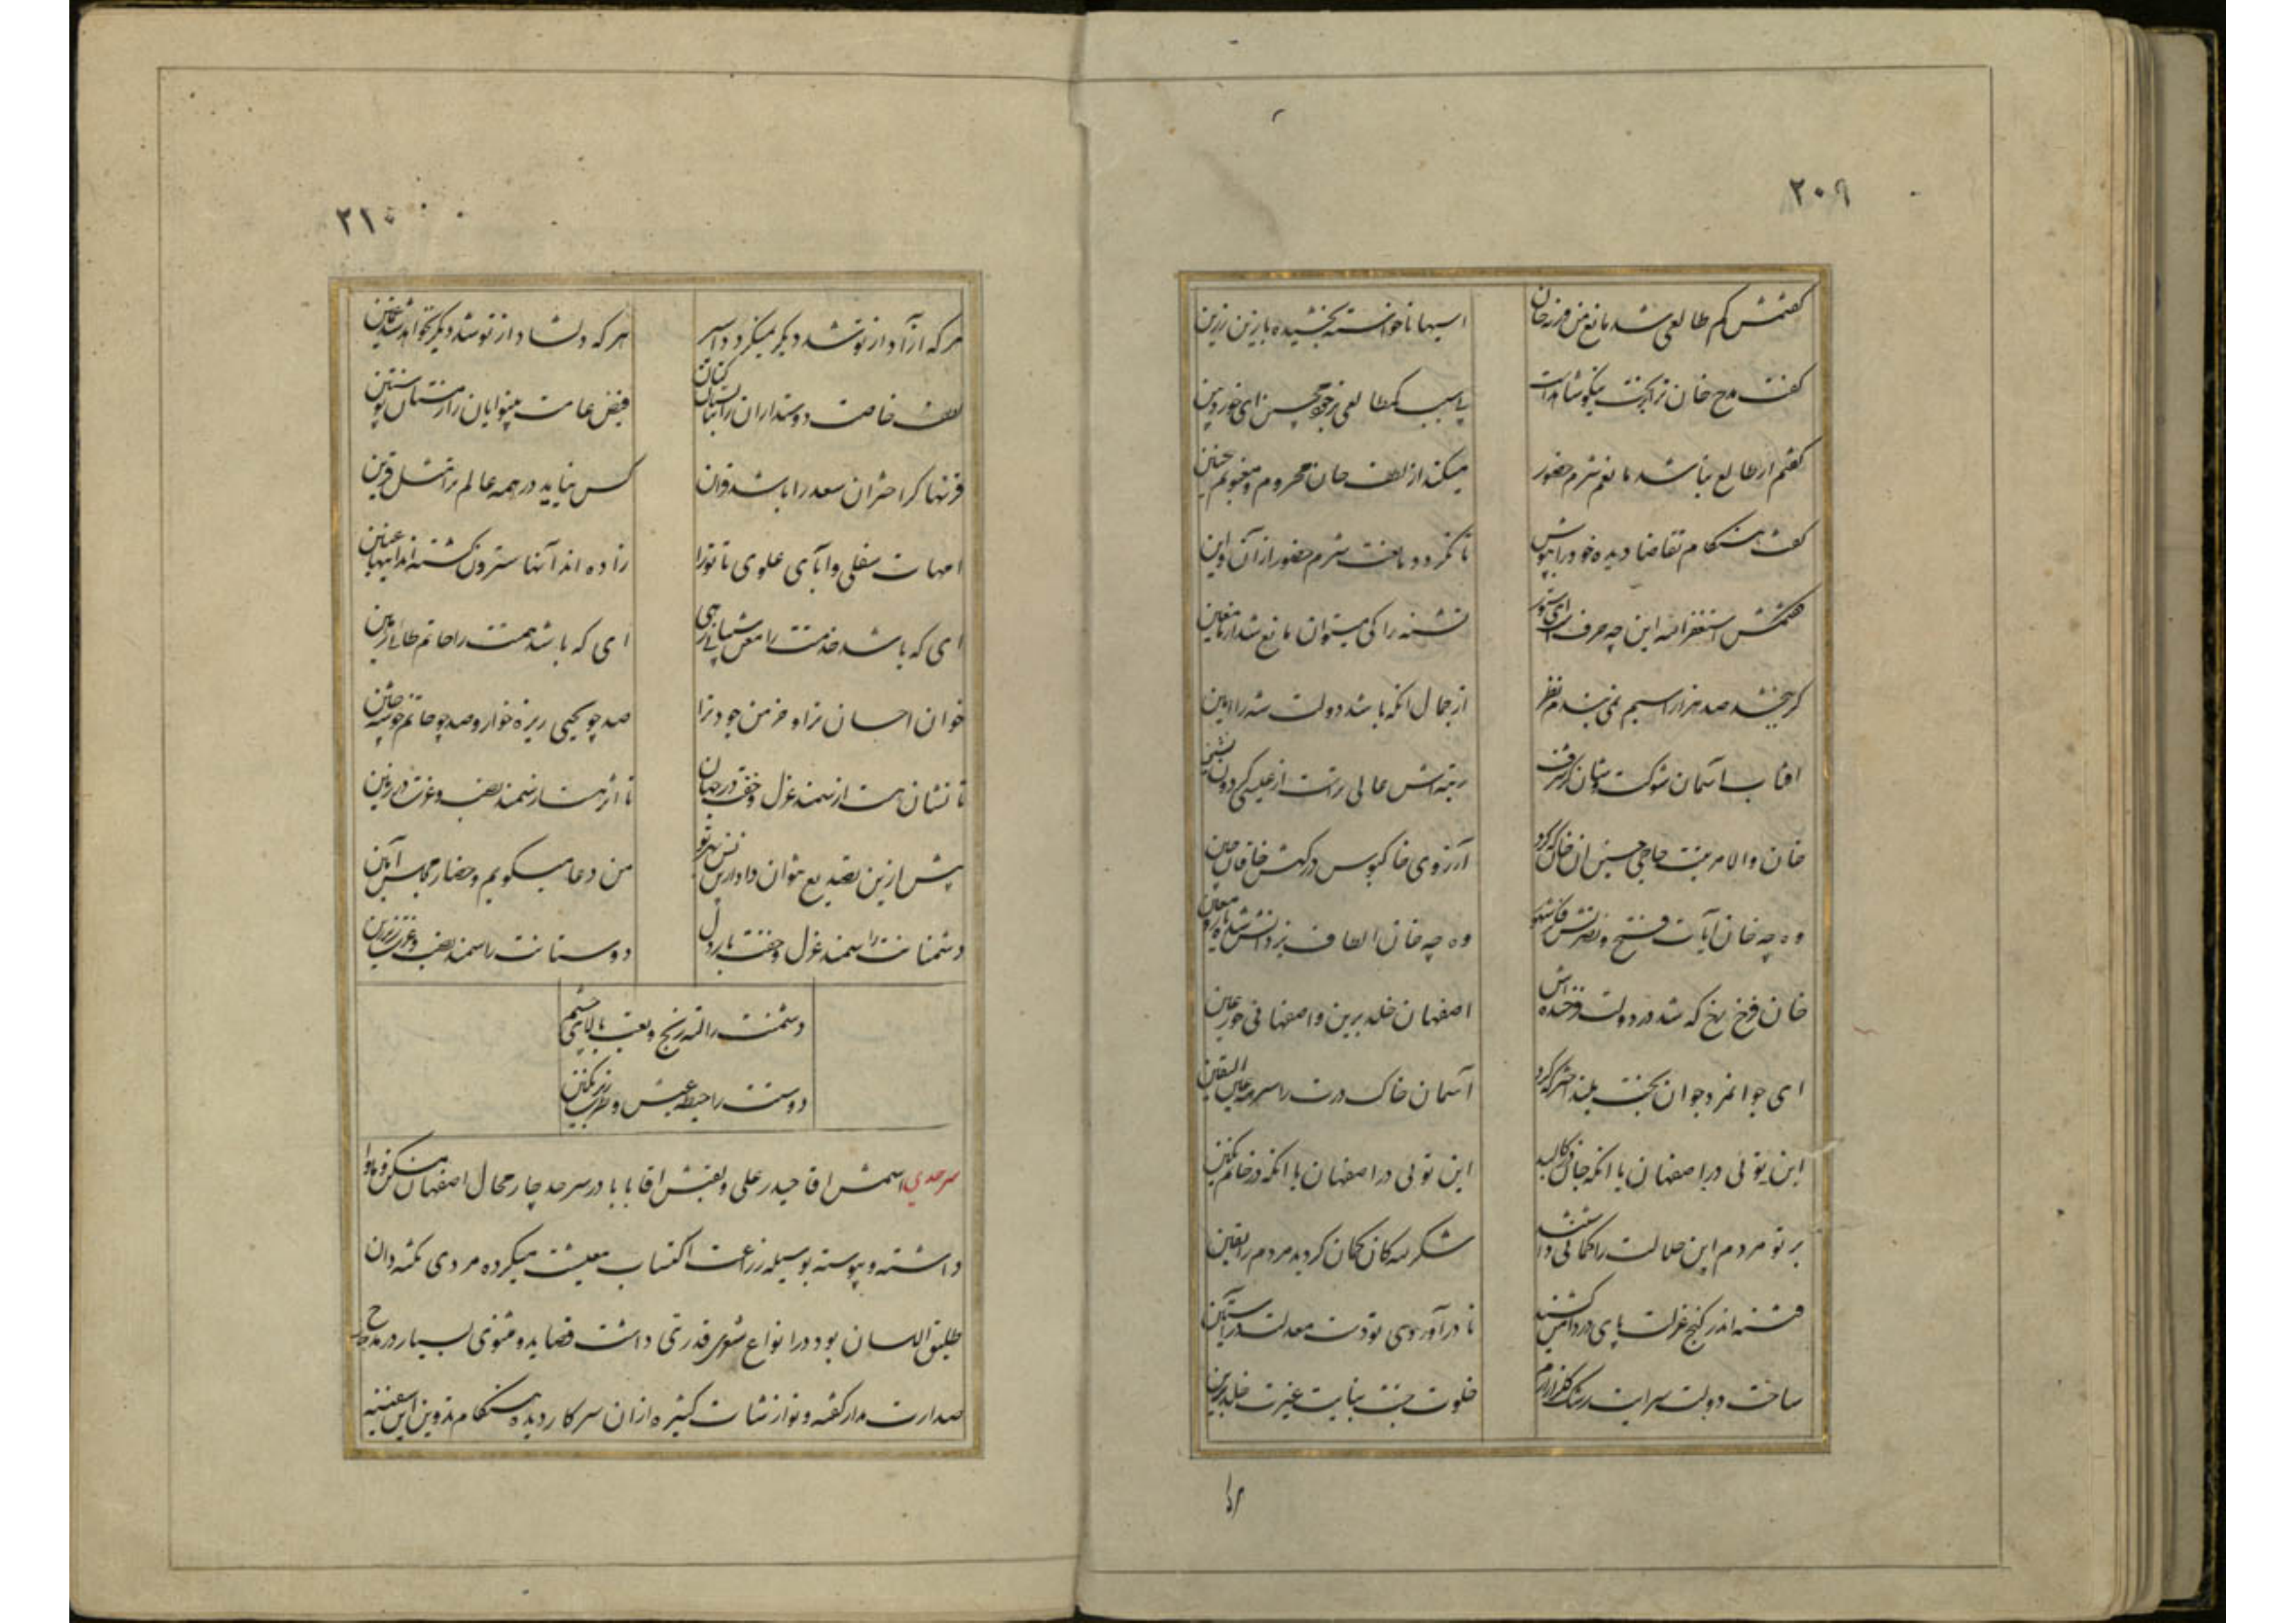 ۲۰۹
گفتمش کم طالعی شد مانع من ورنه خان
اسبها ناخواسته بخشیده با زین زرین
گفت مدح خان ترا بخت نیکو شاهد است
گفتم ار طالع نباشد مانعم شرم حضور
میکند از لطف خان محروم و مغبونم چنین
گفت هنگام تقاضا دیده خود را بپوش
تا نگردد مانعت شرم حضور از آن و این
گفتمش استغفرالله این چه حرف است ای
تشنه را کی میتوان مانع شد از ماء معین
گر ببخشد صد هزار اسبم نمی بندم نظر
از جمال آنکه باشد دولت شه را امین
افتاب آسمان شوکت و شان کز شرف
رتبه اش عالی تر است از عیسی گردون نشین
خان والا مرتبت حاجی حسین خان آنکه کرد
آرزوی خاکبوس درگهش خاقان چین
وه چه خان آیات فتح و نصرتش
وه چه خان الطاف یزدانش معین
خان فرخ رخ که شد در دولت فرخنده اش
اصفهان خلد برین و اصفهانی حور عین
ای جوانمرد جوان بخت بلند اختر که کرد
آسمان خاک درت را سرمه عین الیقین
این توئی در اصفهان یا آنکه جان در کالبد
این توئی در اصفهان یا آنکه در خاتم نگین
بر تو مردم این حالت را گمانی داشتند
شکر لله کان گمان گردید مردم را یقین
فتنه اندر کنج عزلت پای در دامن کشید
تا در آوردی تو دست معدلت در آستین
ساخت دولت سرایت رشک گلزار ارم
خلوت جنت بنایت غیرت خلد برین
۲۱۰
هر که آزاد از تو شد دیگر نمیگردد اسیر
هر که دلشاد از تو شد دیگر نخواهد شد غمین
لطف خاصت دوستداران را بتابستان کتان
فیض عامت بینوایان را زمستان پوستین
قرنها گر اختران سعد را باشد قران
کس نیاید در همه عالم ترا مثل و قرین
امهات سفلی و آبای علوی تا ترا
زاده اند آنها سترون گشته اند اینها عنین
ای که باشد خدمتت را معن شیبانی رهی
ای که باشد همتت را حاتم طائی رهین
خوان احسان ترا و خرمن جود ترا
صد چو یحیی ریزه خوار و صد چو حاتم خوشه چین
تا نشان هست از سمند عزل و خفت در جهان
تا اثر هست از سمند نصب و عزت در زمین
پیش ازین تصدیع نتوان داد
من دعا میگویم و حضار مجلس آمین
دشمنانت را سمند عزل و خفت بار دل
دوستانت را سمند نصب و عزت زیر ران
دشمنت را رنج و تعب بالای چشم
دوستت را حیطه عیش و طرب زیر نگین
سرحدی اسمش اقا حیدر علی و لقبش اقا بابا در سرحد چار محال اصفهان مسکن و ماوا
داشته و پیوسته بوسیله زراعت اکتساب معیشت میکرده مردی نکته دان
طلیق اللسان بود در انواع شعر قدرتی داشت قصاید و مثنوی بسیار در مدح
صدارت مدار گفته و نوازشات کثیره از آن سرکار دیده هنگام تدوین این سفینه